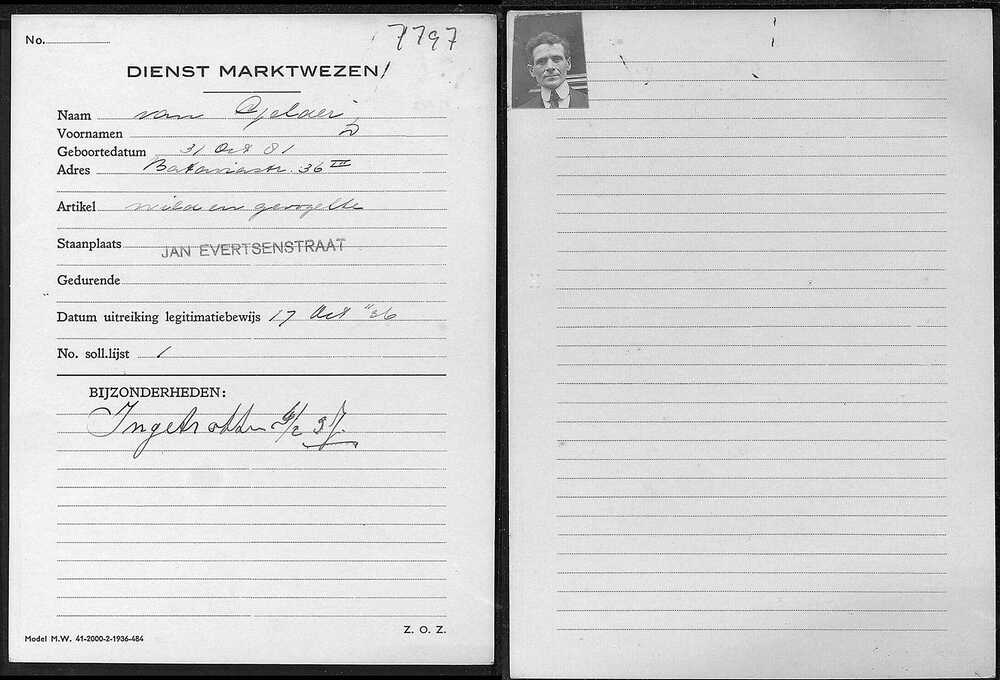 No. 7797
DIENST MARKTWEZEN
Naam van Gelder
Voornamen
Geboortedatum 31 Oct 81
Adres Bataviastr. 36 III
Artikel wild en gevogelte
Staanplaats JAN EVERTSENSTRAAT
Gedurende
Datum uitreiking legitimatiebewijs 17 Oct "36
No. soll.lijst 1
BIJZONDERHEDEN:
Ingetrokken 9/2 37.
Model M.W. 41-2000-2-1936-484
Z. O. Z.